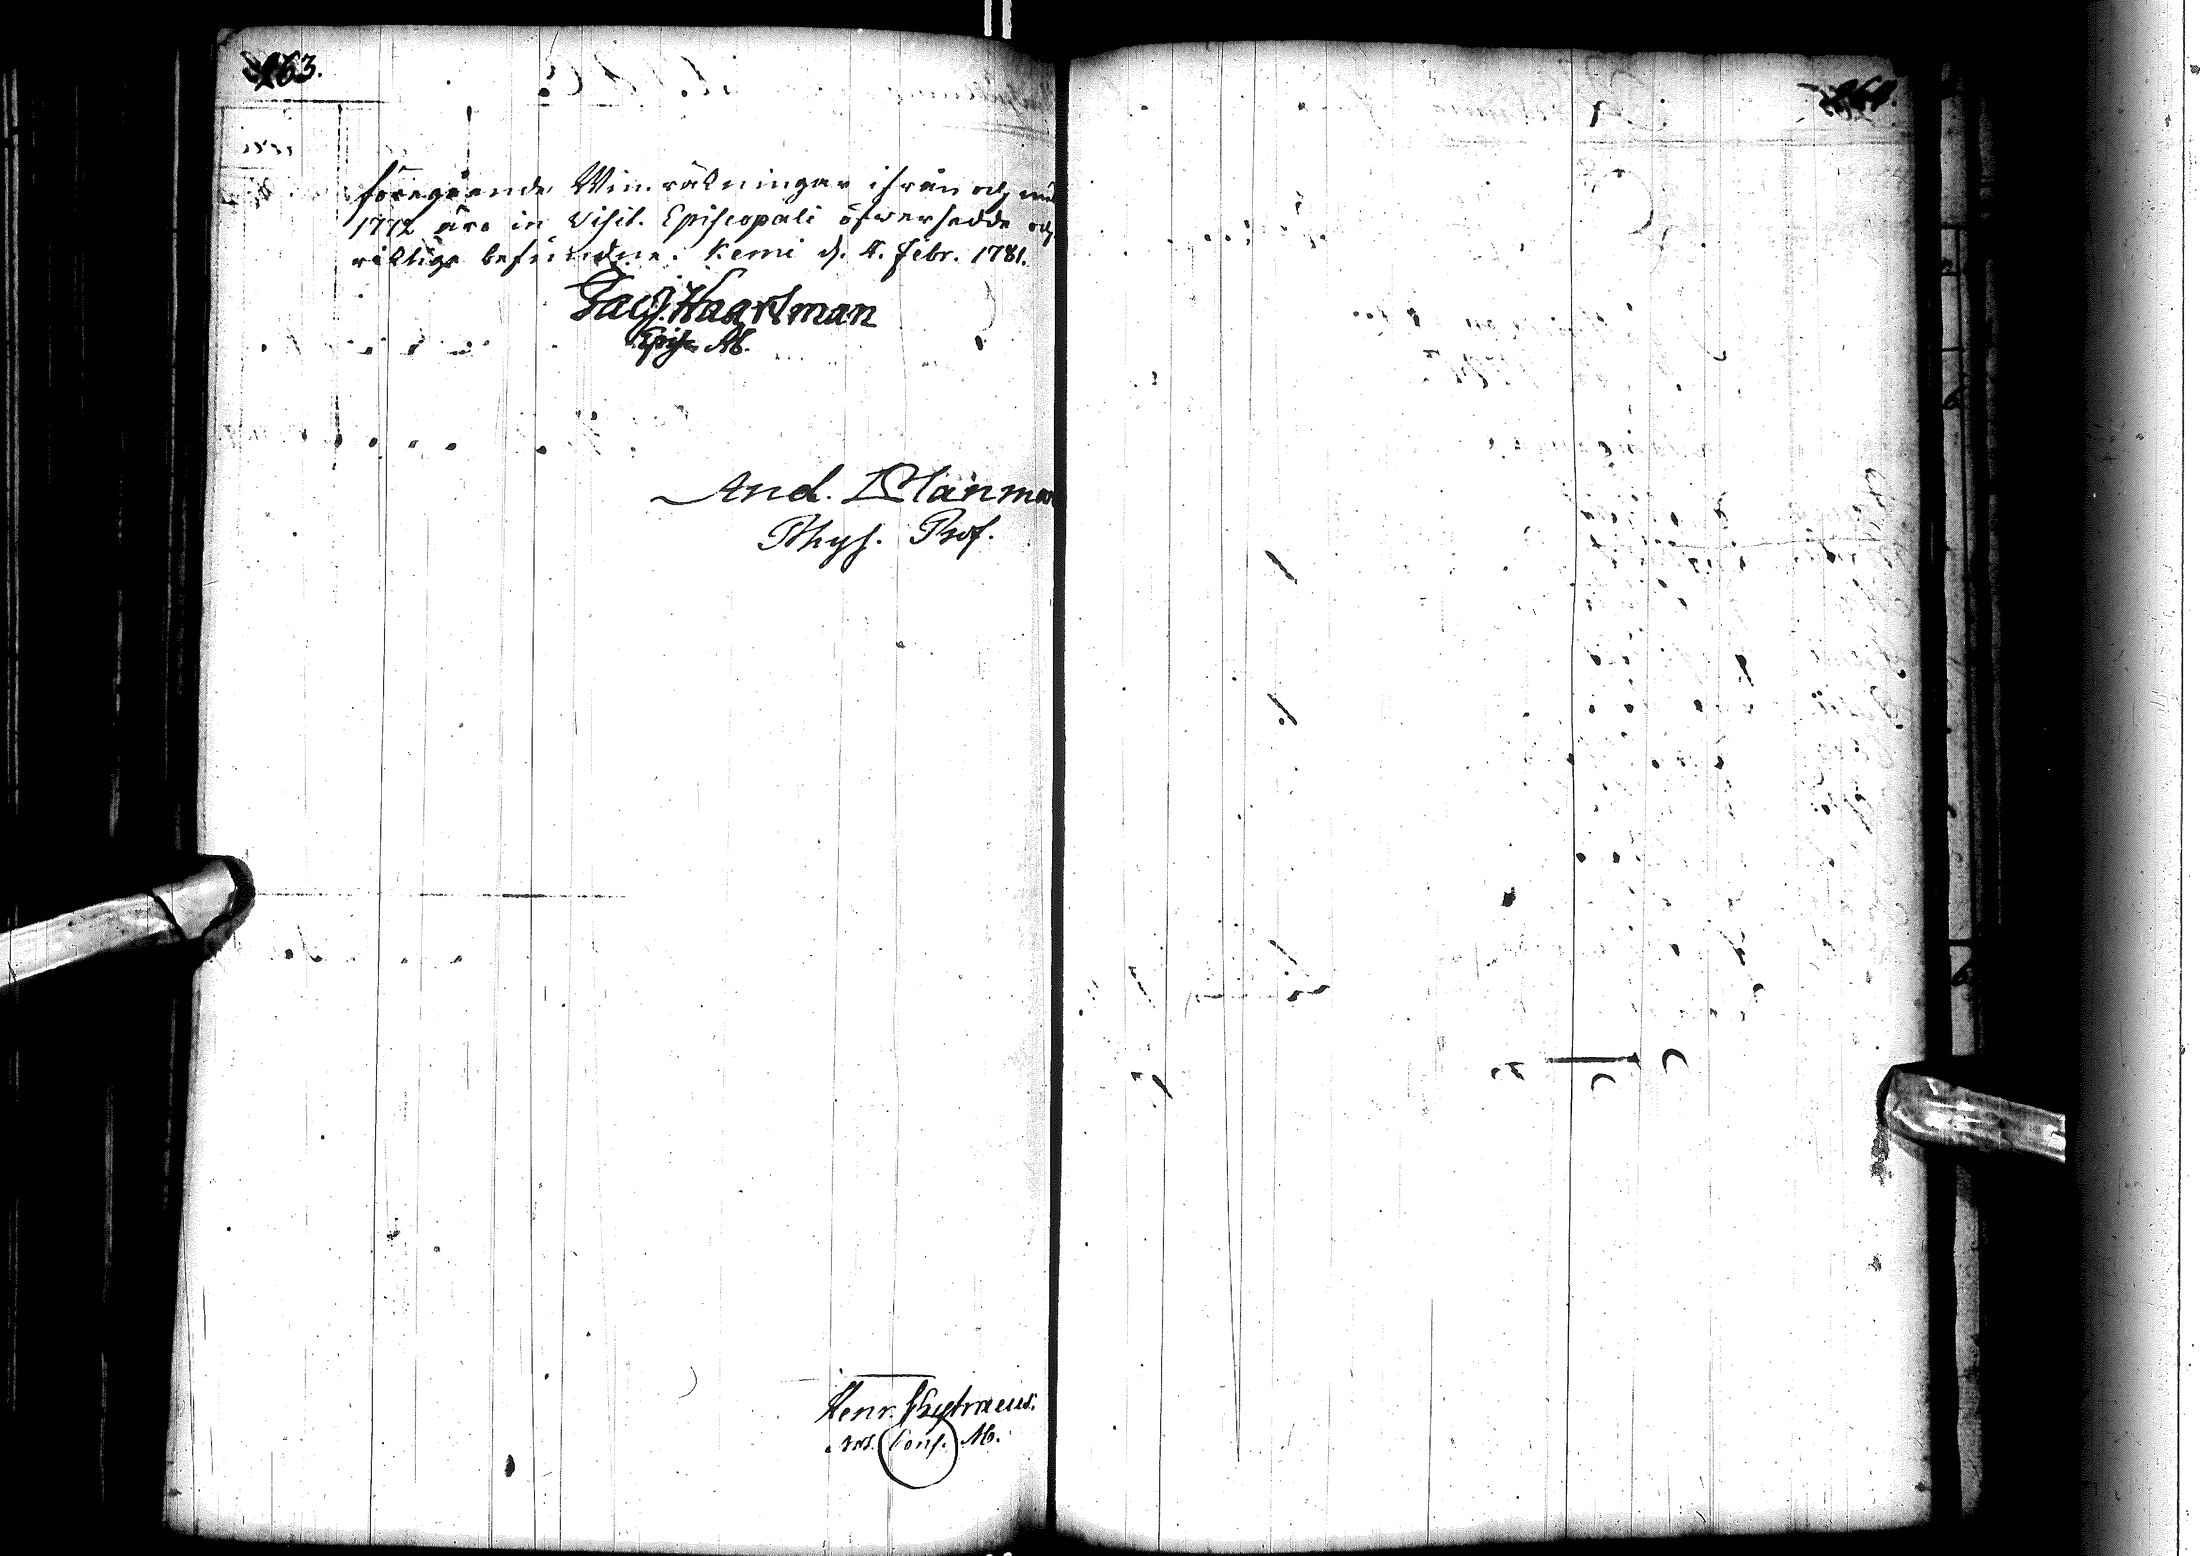 263.
föregående Winräkningar ifrån och med
1772 äro in Visit. Episcopali öfwersedde och
riktige befundne. Kemi d. 4. Febr. 1781.
Jac. Haartman
Episc. Ab.
And. Planman
Phys. Prof.
Henr.
Not. Cons. Ab.
264.